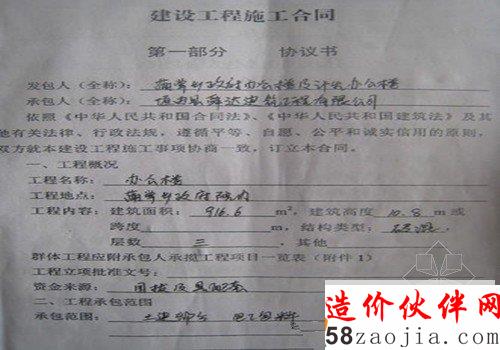 建设工程施工合同
第一部分 协议书
发包人（全称）： 乡政府办公楼及计生办公楼
承包人（全称）： 建筑工程有限公司
依照《中华人民共和国合同法》、《中华人民共和国建筑法》及其
他有关法律、行政法规，遵循平等、自愿、公平和诚实信用的原则，
双方就本建设工程施工事项协商一致，订立本合同。
一、工程概况
工程名称： 办公楼
工程地点： 乡政府院内
工程内容：建筑面积： 916.6 m²，建筑高度 10.8 m或
跨度 m，结构类型： 砖混，
层数 三 ，其他
群体工程应附承包人承揽工程项目一览表（附件1）
工程立项批准文号：
资金来源： 国拨及其配套
二、工程承包范围
承包范围： 土建 包工包料
造价伙伴网
58zaojia.com